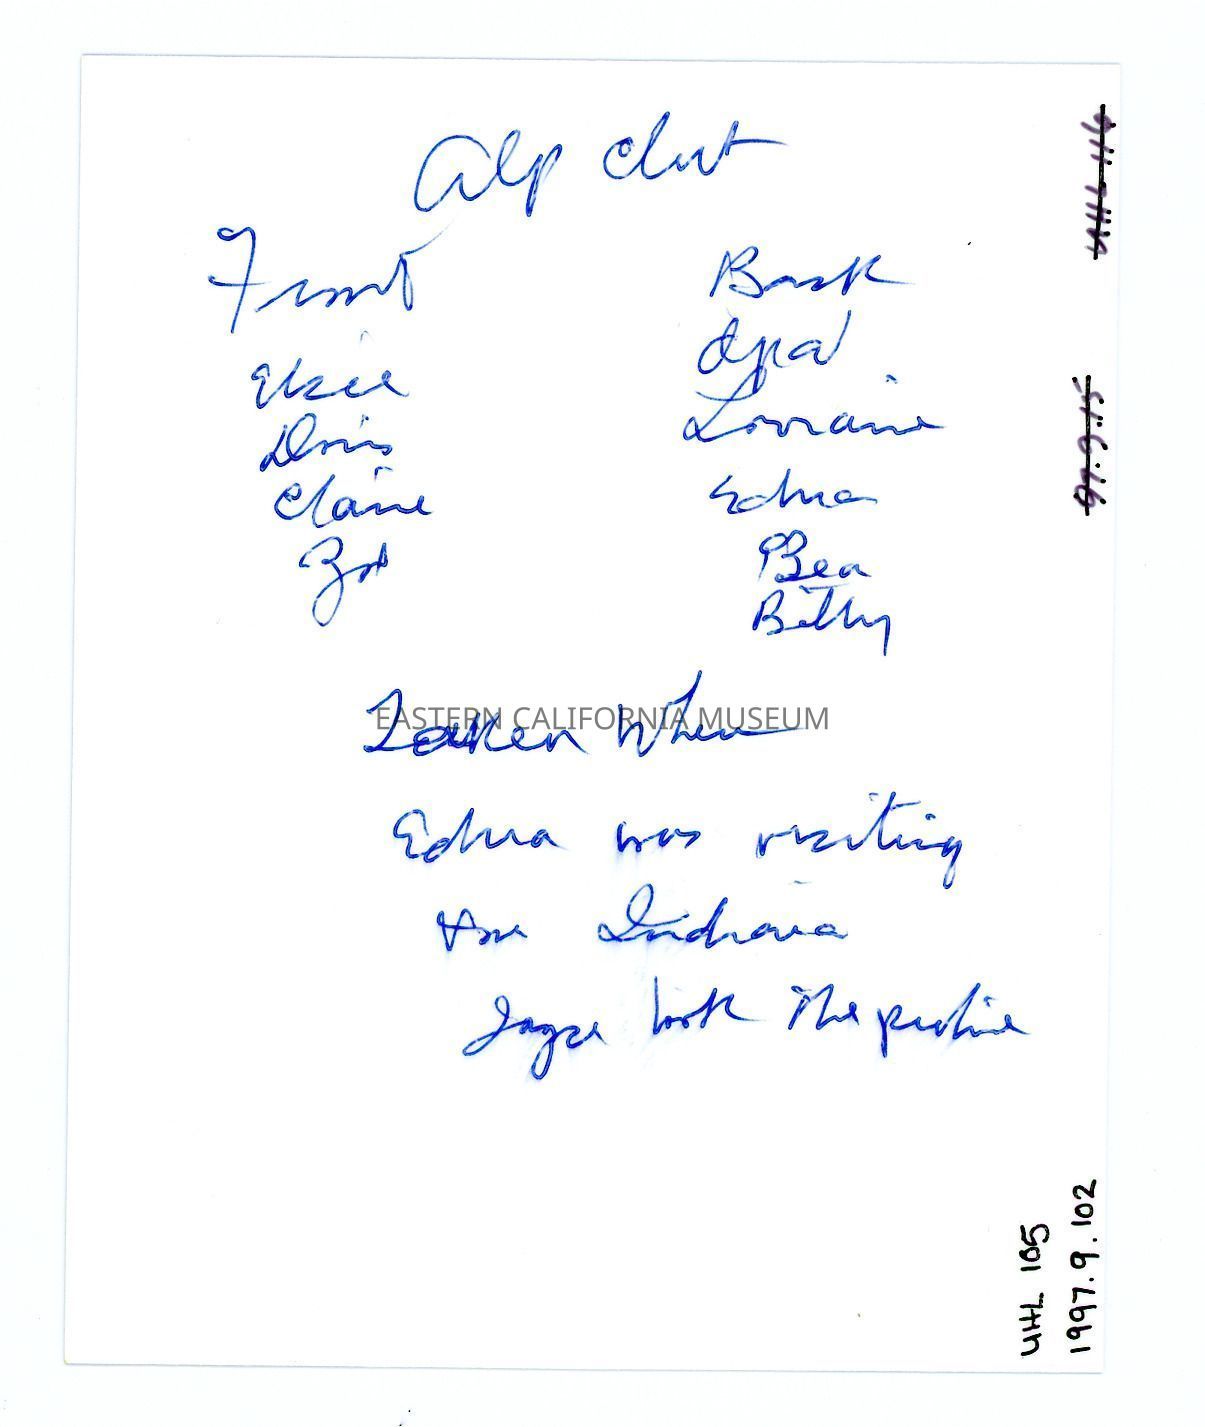 Alp Club
Front
Back
Elsie
Opal
Doris
Lorraine
Claire
Edna
Bea
Betty
EASTERN CALIFORNIA MUSEUM
Taken When
Edna was visiting
from Indiana
Joyce took the picture
UHL-116
97.9.15
UHL 105
1997.9.102